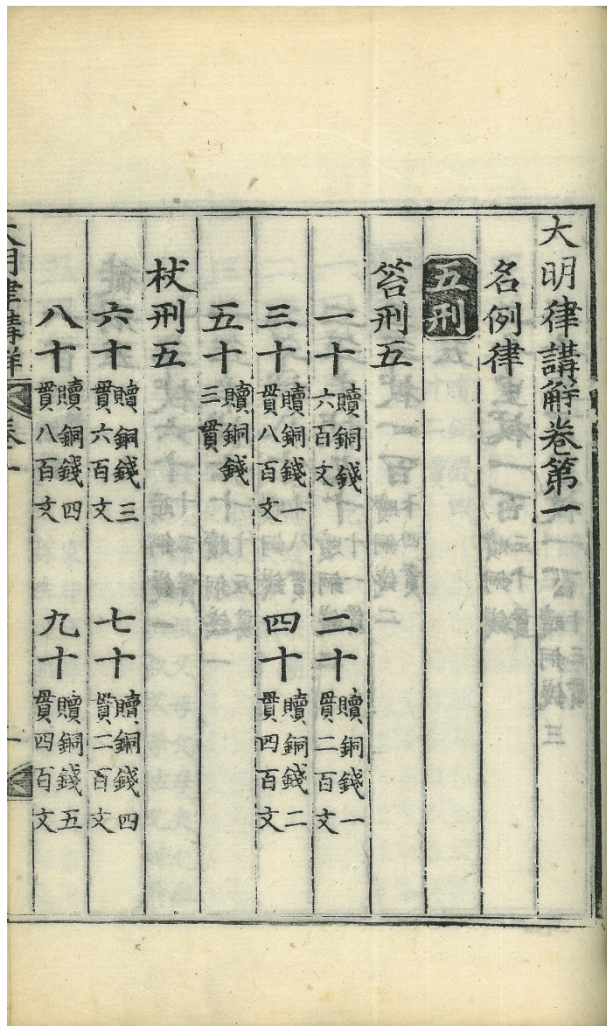 大明律講解卷第一
名例律
五刑
笞刑五
一十 贖銅錢六百文 二十 贖銅錢一貫二百文
三十 贖銅錢一貫八百文 四十 贖銅錢二貫四百文
五十 贖銅錢三貫
杖刑五
六十 贖銅錢三貫六百文 七十 贖銅錢四貫二百文
八十 贖銅錢四貫八百文 九十 贖銅錢五貫四百文
大明律講解 卷一 一